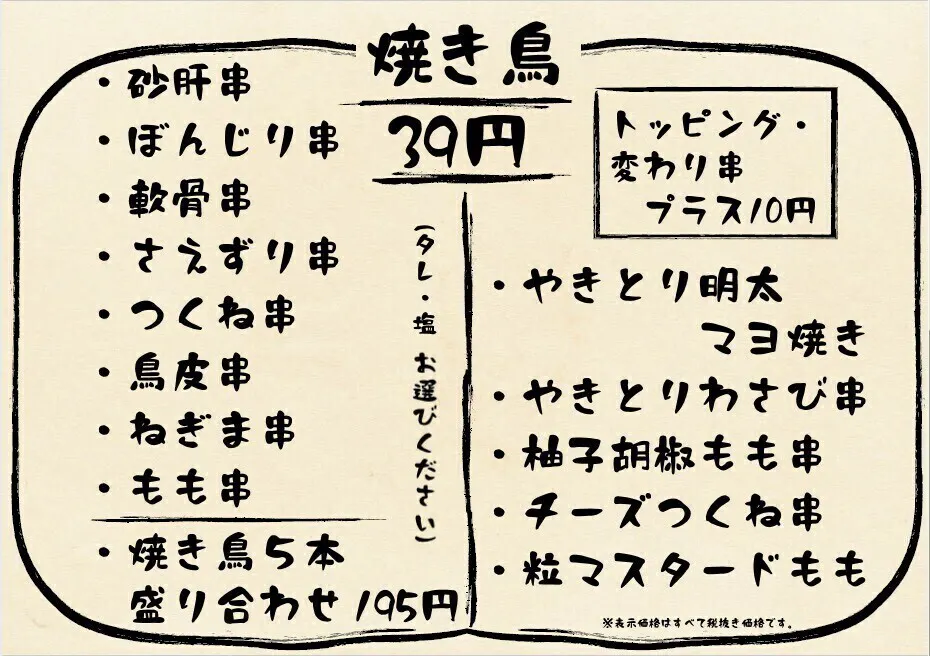 焼き鳥
39円
・砂肝串
・ぼんじり串
・軟骨串
・さえずり串
・つくね串
・鳥皮串
・ねぎま串
・もも串
・焼き鳥5本
盛り合わせ 195円
(タレ・塩 お選びください)
トッピング・
変わり串
プラス10円
・やきとり明太
マヨ焼き
・やきとりわさび串
・柚子胡椒もも串
・チーズつくね串
・粒マスタードもも
※表示価格はすべて税抜き価格です。